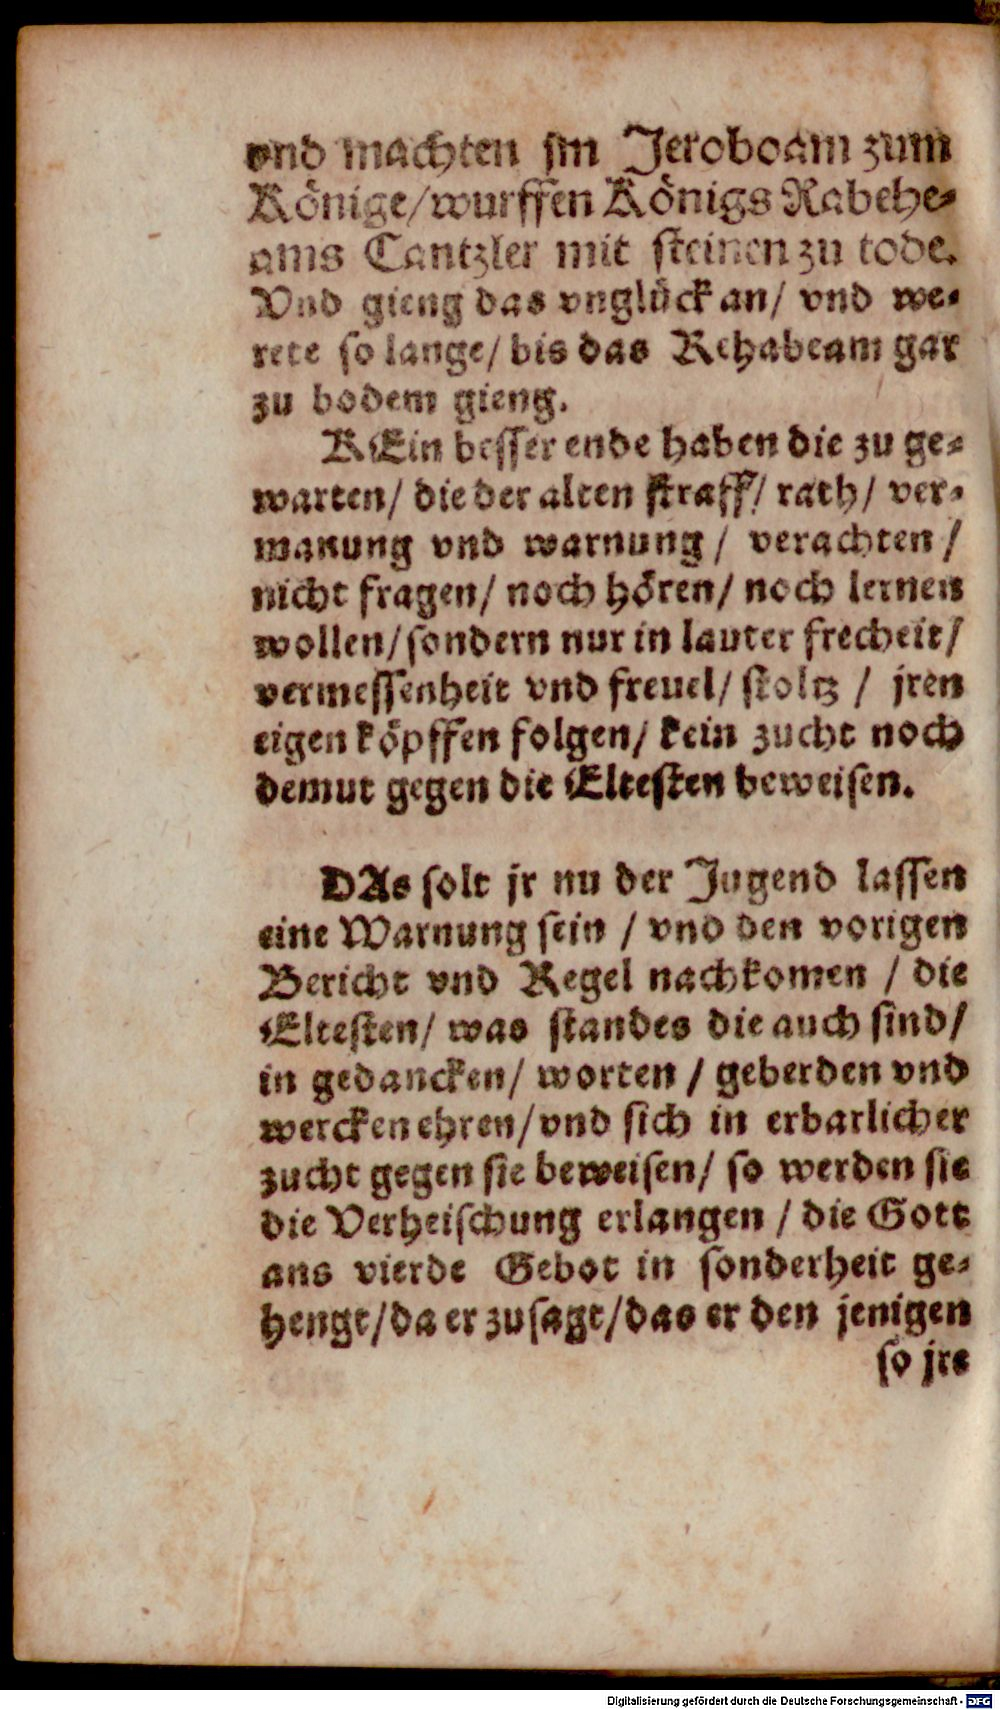 vnd machten jm Jeroboam zum
Könige/wurffen Königs Rabehe⸗
ams Cantzler mit steinen zu tode.
Vnd gieng das vnglück an/ vnd we⸗
rete so lange/ bis das Rehabeam gar
zu bodem gieng.
KEin besser ende haben die zu ge⸗
warten/ die der alten straff/ rath/ ver⸗
manung vnd warnung / verachten /
nicht fragen/ noch hören/ noch lernen
wollen/sondern nur in lauter frecheit/
vermessenheit vnd freuel/ stoltz / jren
eigen köpffen folgen/ kein zucht noch
demut gegen die Eltesten beweisen.
DAs solt jr nu der Jugend lassen
eine Warnung sein / vnd den vorigen
Bericht vnd Regel nachkomen / die
Eltesten/ was standes die auch sind/
in gedancken/ worten / geberden vnd
wercken ehren/ vnd sich in erbarlicher
zucht gegen sie beweisen/ so werden sie
die Verheischung erlangen / die Gott
ans vierde Gebot in sonderheit ge⸗
hengt/da er zusagt/das er den jenigen
so jre
Digitalisierung gefördert durch die Deutsche Forschungsgemeinschaft - DFG